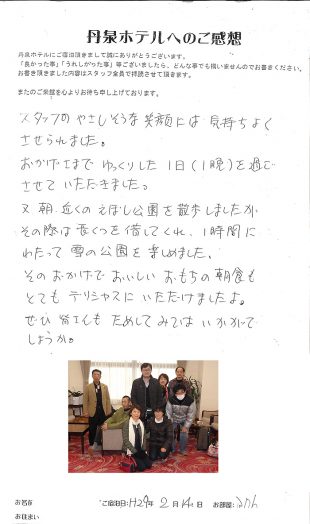 丹泉ホテルへのご感想
丹泉ホテルにご宿泊頂きまして誠にありがとうございます。
「良かった事」「うれしかった事」等ございましたら、どんな事でも構いませんのでお書きください。
お書き頂きました内容はスタッフ全員で拝読させて頂きます。
またのご来館を心よりお待ち申し上げております。
スタッフのやさしそうな笑顔には気持ちよく
させられました。
おかげさまでゆっくりした1日(1晩)を過ご
させていただきました。
又、朝、近くのえぼし公園を散歩しましたが
その際は長ぐつを借してくれ、1時間に
わたって雪の公園を楽しめました、
そのおかげでおいしいおもちの朝食も
とてもデリシャスにいただけましたよ。
ぜひ皆さんもためしてみてはいかがで
しょうか。
お名前
ご宿泊日:H29年2月14日 お部屋:
お住まい